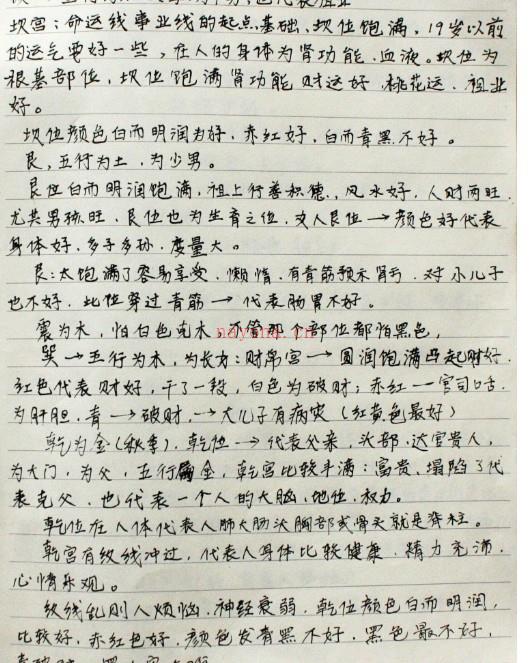 坎宫：命运线事业线的起点基础、坎位饱满，19岁以前
的运气要好一些，在人的身体为肾功能．血液。坎位为
根基部位，坎位饱满肾功能 财运好．桃花运．祖业
好。
坎位颜色白而明润为好．赤红好，白而青黑不好。
艮，五行为土．为少男。
艮位白而明润饱满，祖上行善积德．，风水好，人财两旺
尤其男孩旺．艮位也为生育之位．女人艮位→颜色好代表
身体好．多子多孙．度量大。
艮：太饱满了容易享受．懒惰．有青筋预示肾亏．对小儿子
也不好．此位穿过青筋→代表肠胃不好。
震为木，怕白色克木，不管那个部位都怕黑色，
nayona.cn
巽→五行为木，为长女：财帛宫→圆润饱满凸起财好．
红色代表财好，干了一般，白色为破财；赤红一官司口舌．
为肝胆．青→破财，→大儿子有病灾（红黄色最好）
乾为金（秋季）．乾位→代表父亲，头部．达官贵人，
为大门，为父，五行属金，乾宫比较丰满：富贵、塌陷了代
表克父．也代表一个人的大脑、地位．权力。
乾位在人体代表人肺大肠头胸部或骨头就是脊柱。
乾宫有纹线冲过，代表人身体比较健康．精力充沛．
心情乐观。
纹线乱则人烦恼．神经衰弱．乾位颜色白而明润，
比较好．赤红色好．颜色发青黑不好．黑色最不好．